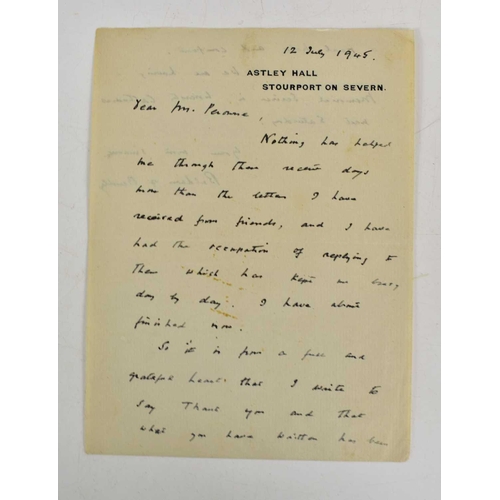 12 July 1945.
ASTLEY HALL
STOURPORT ON SEVERN.
Dear Mrs. Peronne,
Nothing has helped
me through these recent days
more than the letters I have
received from friends, and I have
had the occupation of replying to
them which has kept me busy
day by day. I have about
finished now.
So it is from a full and
grateful heart that I write to
say Thank you and that
what you have written has been